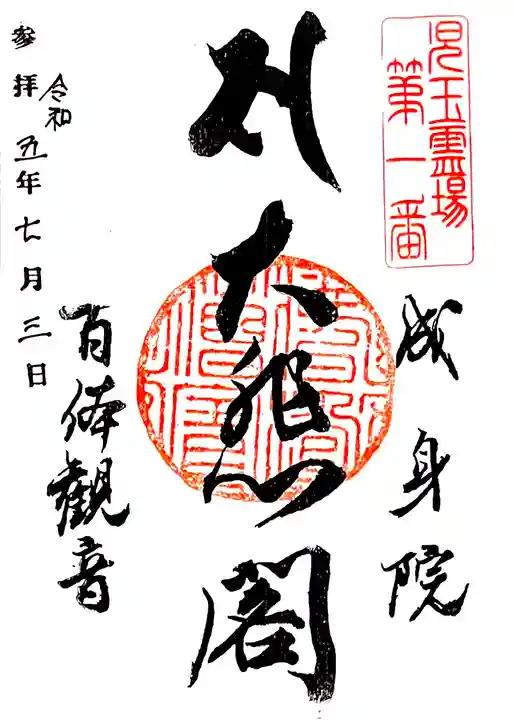 児玉霊場
第一番
成身院
大悲閣
百体観音
令和
参拝五年七月三日